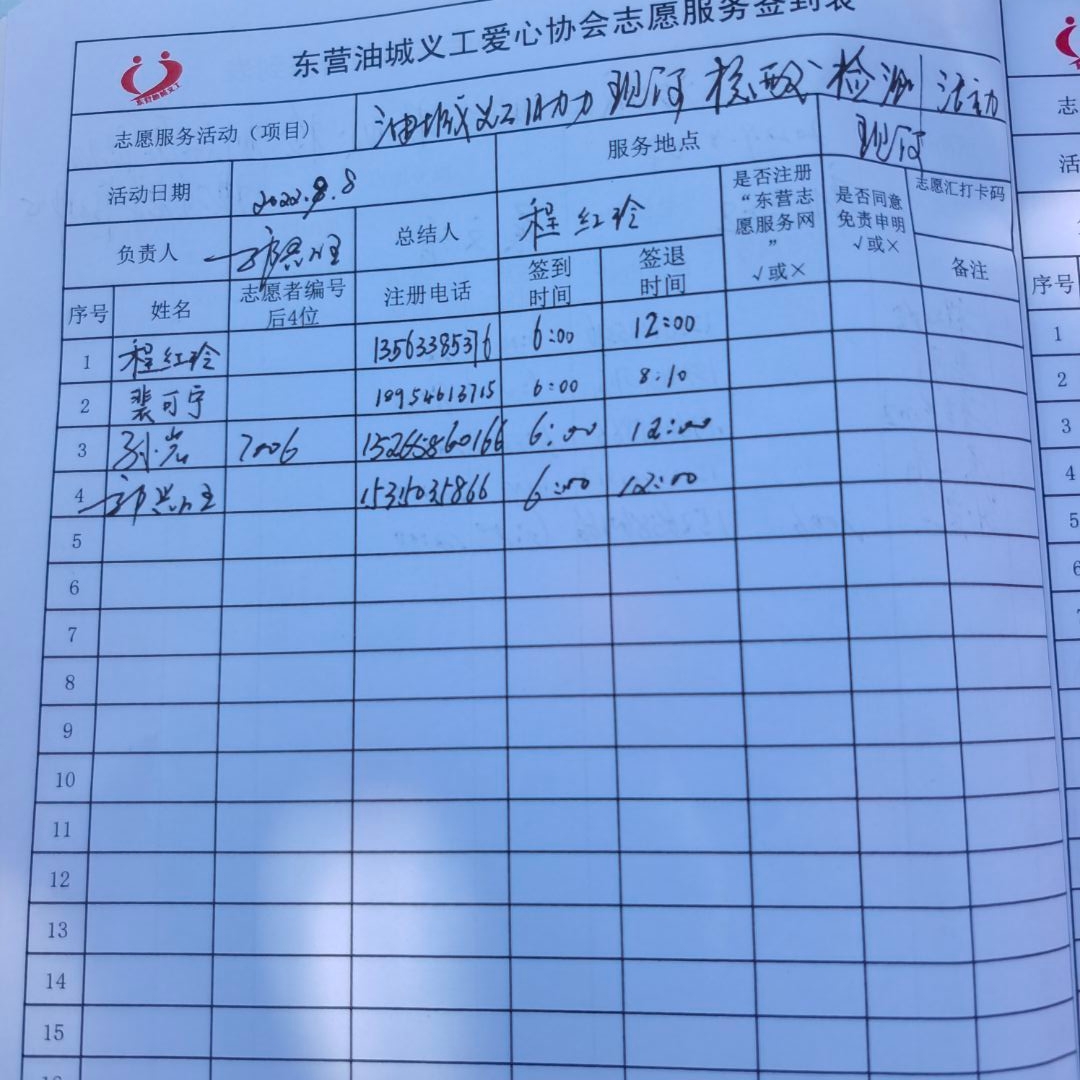 东营油城义工爱心协会志愿服务签到表
东营油城义工
志愿服务活动（项目） 油城义工助力现河核酸检测活动
活动日期 2022.9.8 服务地点 现河
负责人 总结人 程红玲 是否注册“东营志愿服务网” √或× 是否同意免责申明 √或× 志愿汇打卡码
序号 姓名 志愿者编号后4位 注册电话 签到时间 签退时间 备注
1 程红玲 13563385376 6:00 12:00
2 裴可宁 18954613715 6:00 8:10
3 孙岩 7006 15265860166 6:00 12:00
4 15315035866 6:00 12:00
5
6
7
8
9
10
11
12
13
14
15
16
志
活
序号
1
2
3
4
5
6